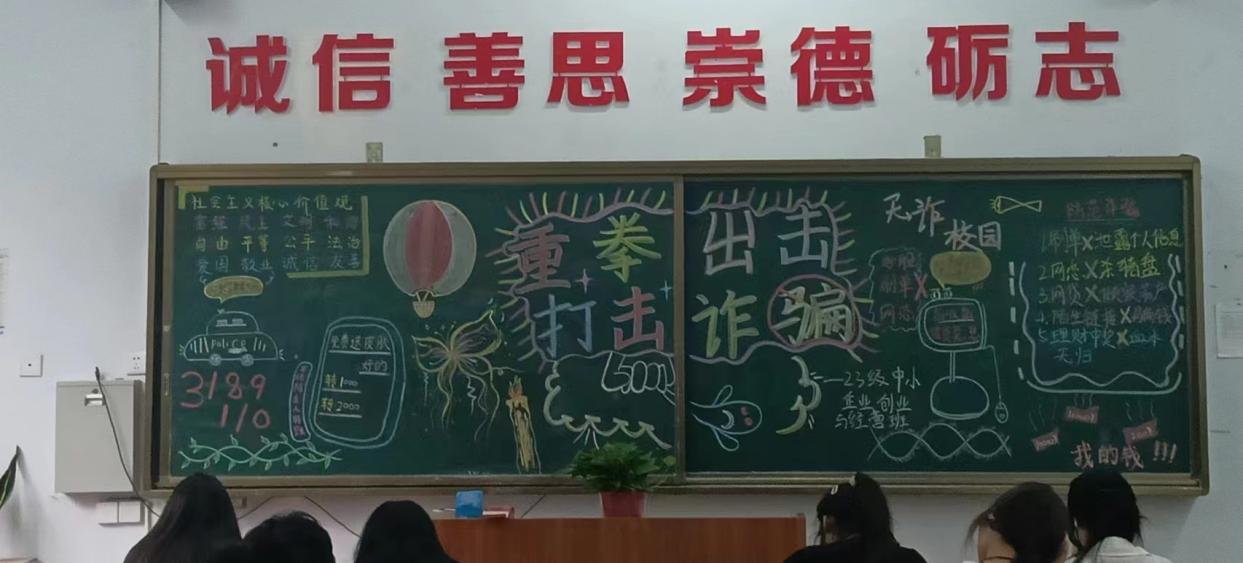 诚信 善思 崇德 砺志
社会主义核心价值观
富强 民主 文明 和谐
自由 平等 公平 法治
爱国 敬业 诚信 友善
重拳出击
打击诈骗
police
3189
110
免费送皮肤
好的
转1000
转2000
二23级中小
企业创业
与经营班
无诈
校园
刷单
网络
防范诈骗
1.刷单X泄露个人信息
2.网恋X杀猪盘
3.网贷X
4.陌生链接X
5.理财中奖X血本
无归
我的钱!!!